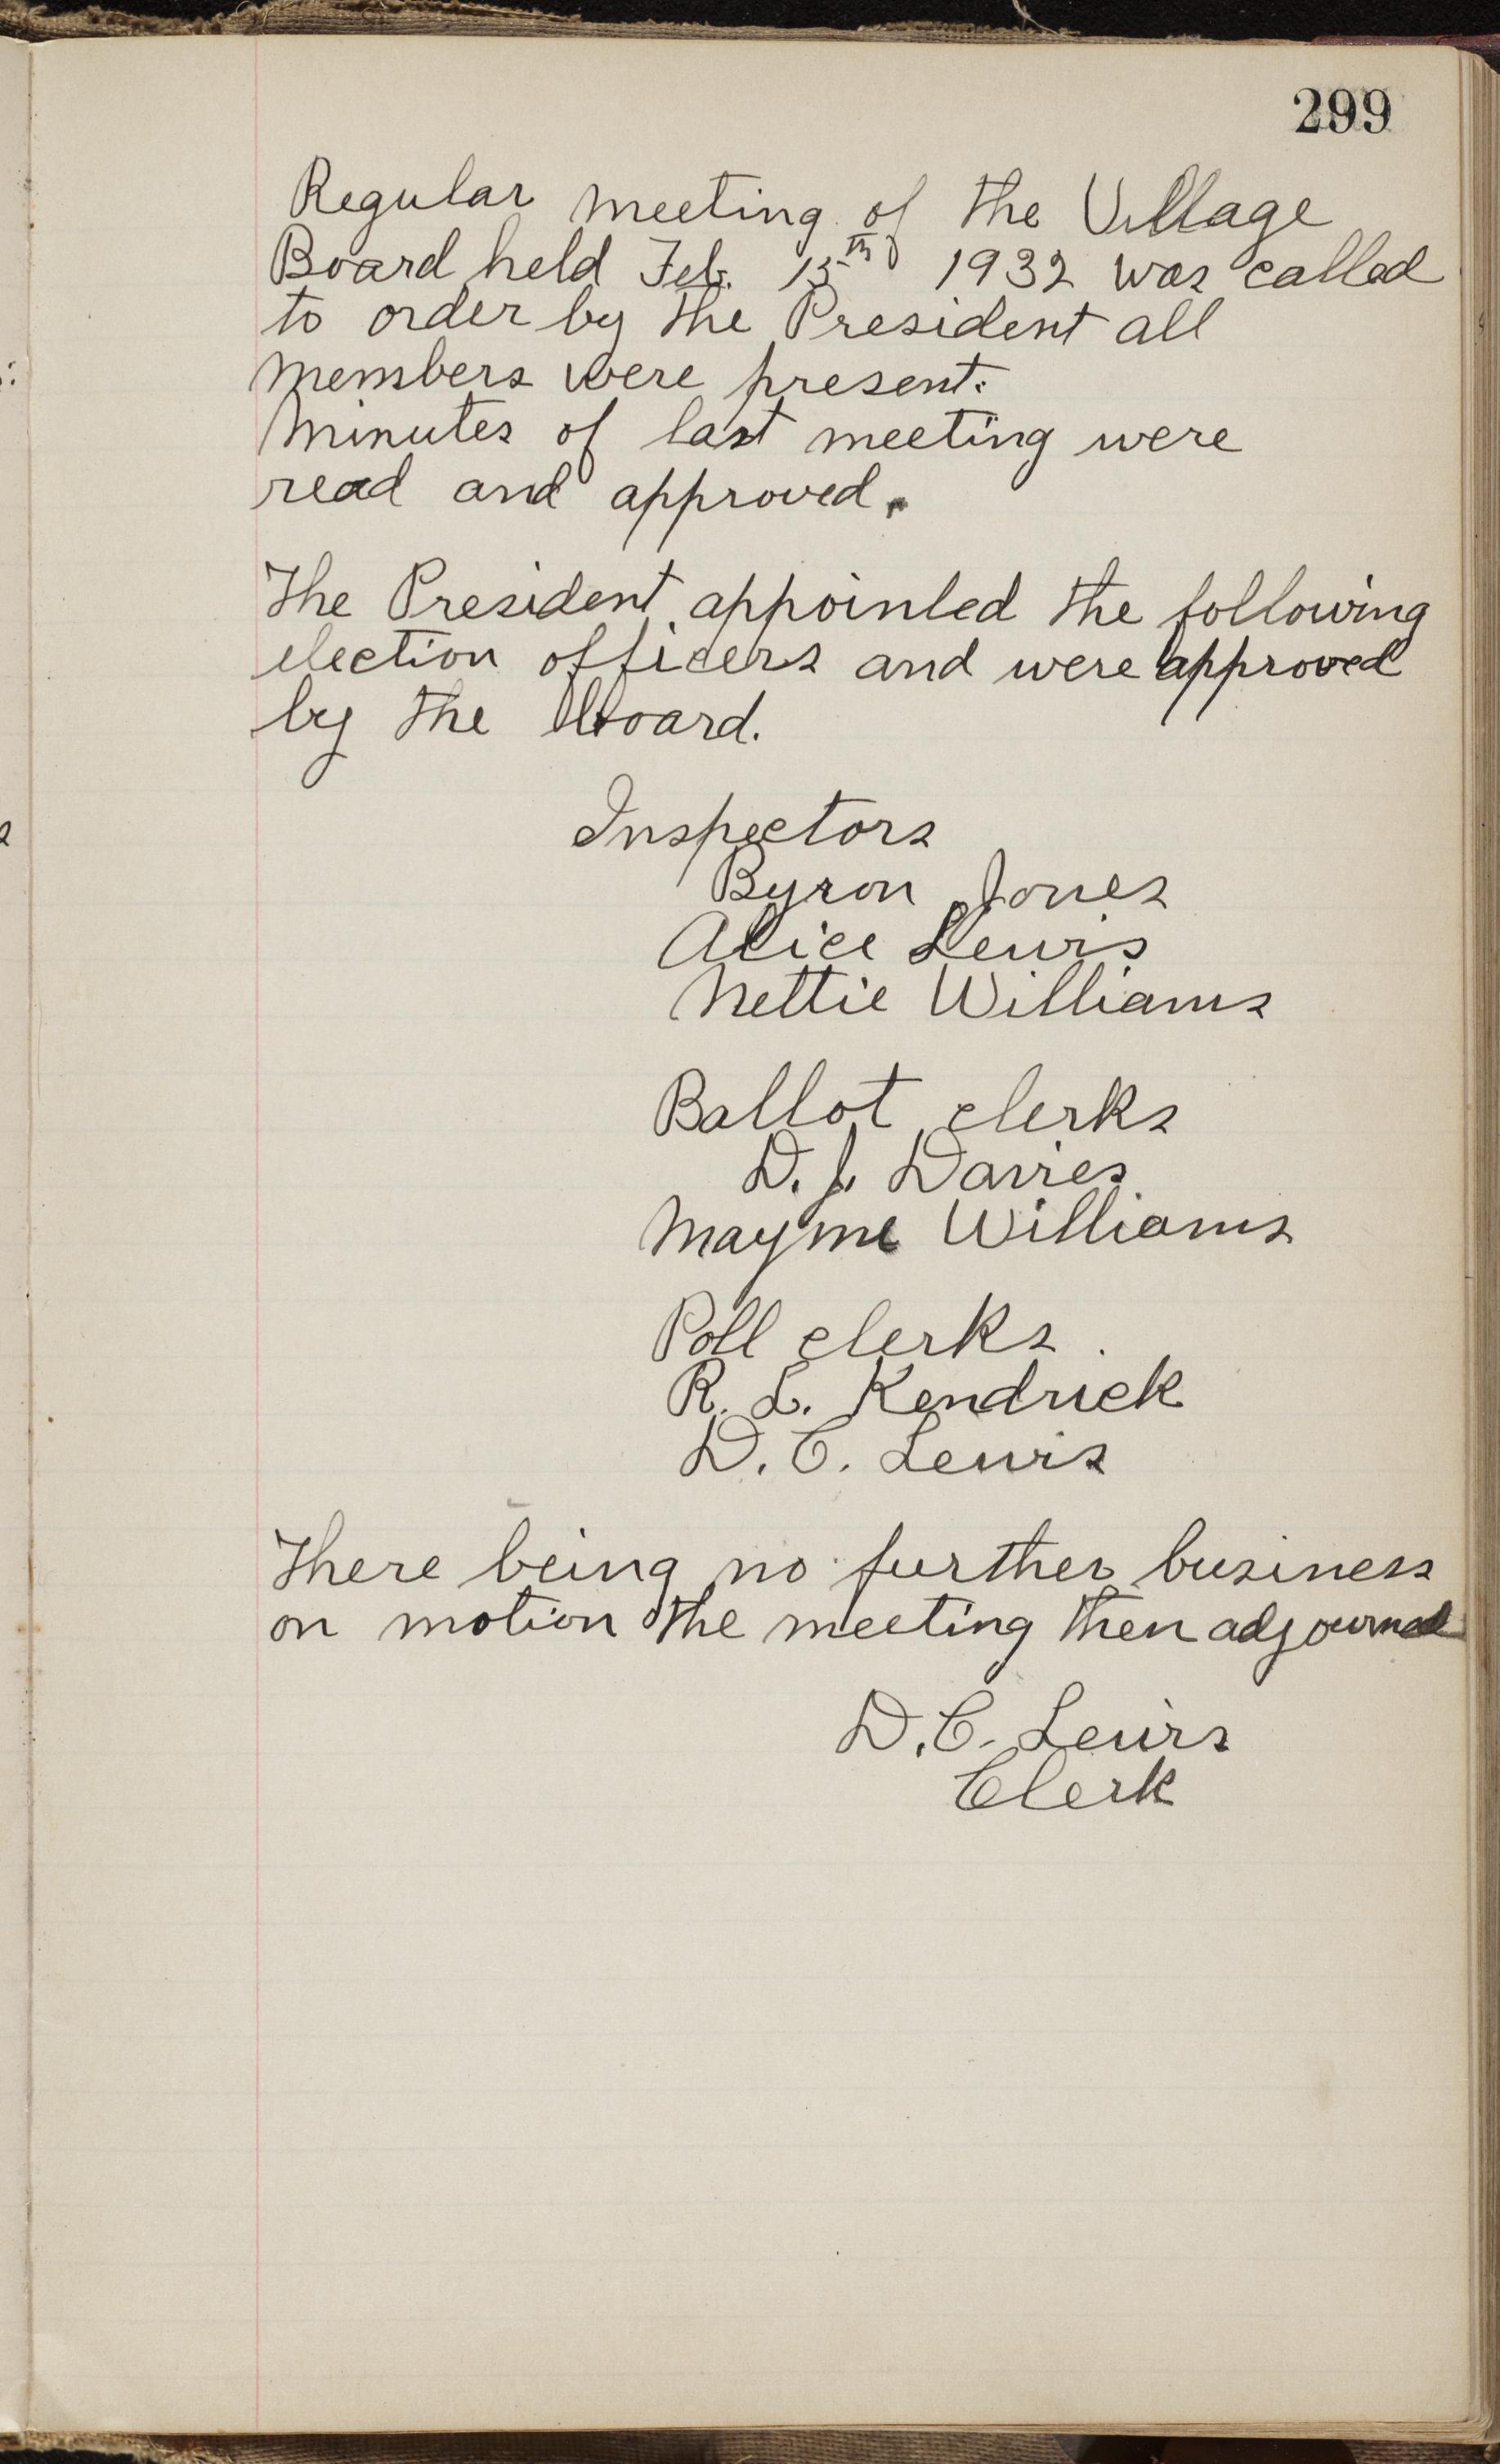 299
Regular meeting of the Village
Board held Feb. 15th 1932 was called
to order by the President all
members were present.
Minutes of last meeting were
read and approved.
The President appointed the following
election officers and were approved
by the Board.
Inspectors
Byron Jones
Alice Lewis
Nettie Williams
Ballot clerks
D. J. Davies
Mayme Williams
Poll clerks
R. L. Kendrick
D. C. Lewis
There being no further business
on motion the meeting then adjourned
D. C. Lewis
Clerk